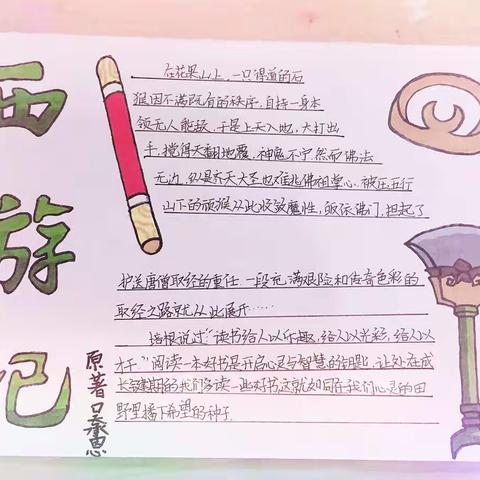 西游记
原著吴承恩
在花果山上,一只得道的石
猴因不满既有的秩序,自持一身本
领无人能敌,于是上天入地,大打出
手,搅得天翻地覆,神鬼不宁.然而佛法
无边,纵是齐天大圣也难逃佛祖掌心.被压五行
山下的顽猴从此收敛魔性,皈依佛门,担起了
护送唐僧取经的重任.一段充满艰险和传奇色彩的
取经之路就从此展开……
培根说过“读书给人以乐趣,给人以光彩,给人以
才干.”阅读一本好书是开启心灵与智慧的钥匙,让处在成
长的我们多读一些好书这就如同在我们心灵的田
野里播下希望的种子.